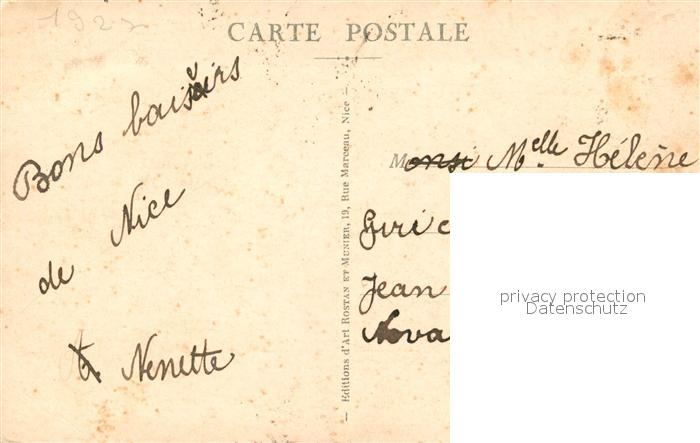 1927
CARTE POSTALE
Bons baisirs
de Nice
Nenette
— Editions d'Art ROSTAN ET MUNIER, 19, Rue Marceau, Nice —
Melle Hélène
Jean
Nova
privacy protection
Datenschutz